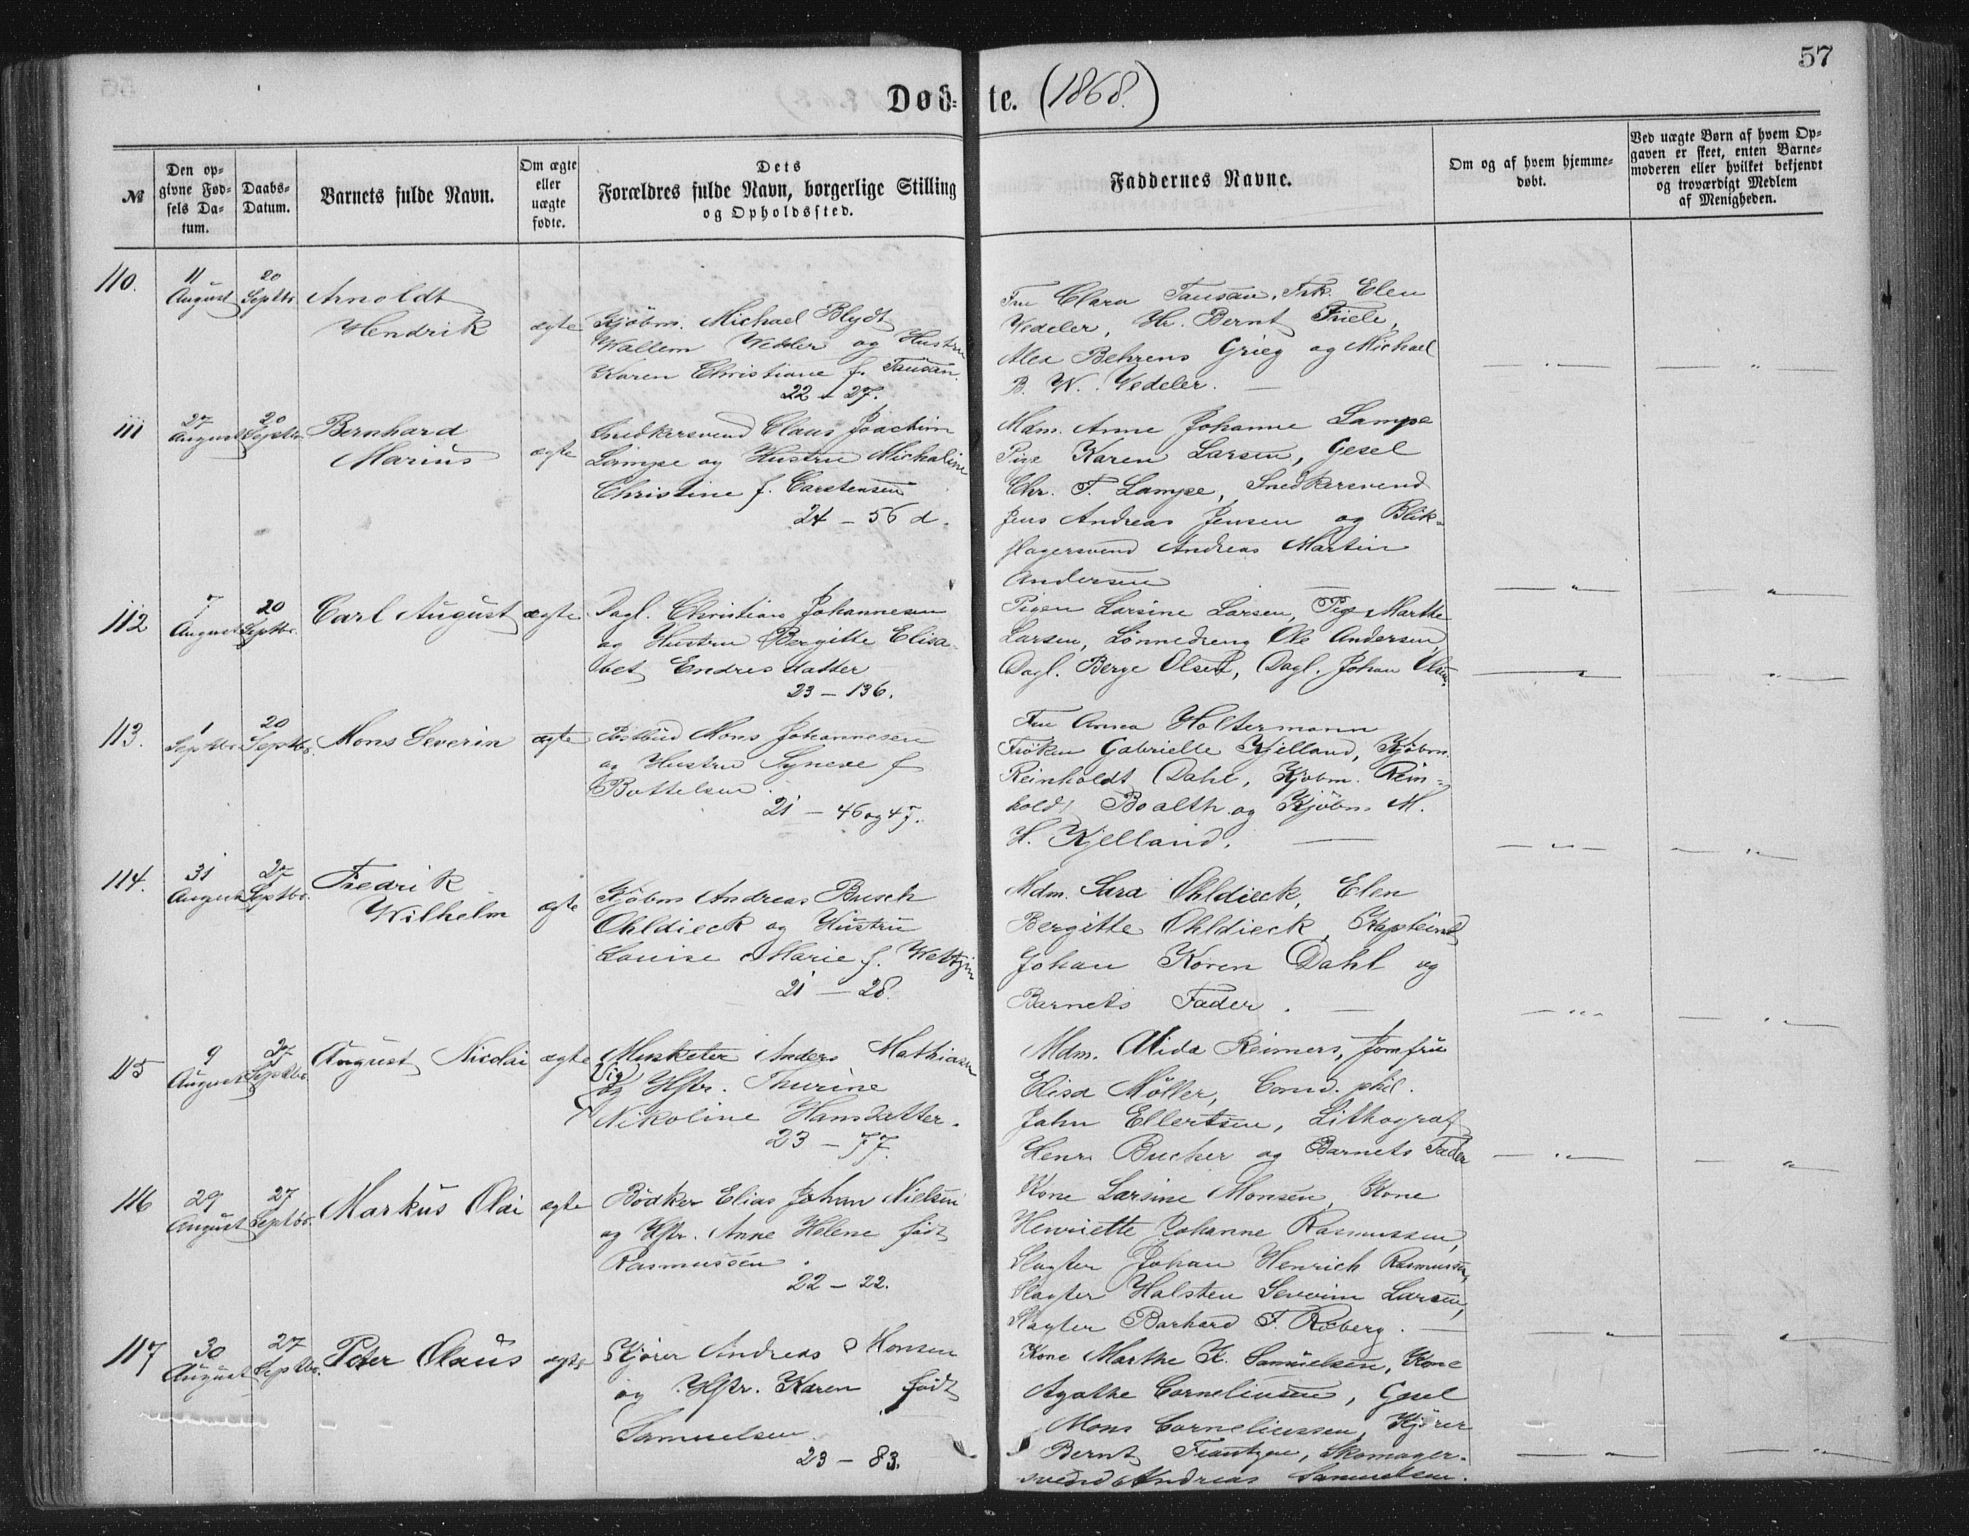 57
Døbte. (1868.)
№
Den opgivne Fødsels Datum.
Daabs-Datum.
Barnets fulde Navn.
Om ægte eller uægte fødte.
Dets Forældres fulde Navn, borgerlige Stilling og Opholdssted.
Faddernes Navne.
Om og af hvem hjemmedøbt.
Ved uægte Børn af hvem Opgaven er skeet, enten Barnemoderen eller hvilket bekjendt og troværdigt Medlem af Menigheden.
110.
11 August
20 Septbr.
Arnoldt
Hendrik
ægte
Kjøbm. Michael Blydt
Wallem Vedeler og Hustru
Karen Christiane f. Fansan.
22 – 27.
Fru Clara Fansan, Frk. Elen
Vedeler, Hr. Bernt Friele,
Alex Behrens Grieg og Michael
B. W. Vedeler. —
111
27 August
20 Septbr.
Bernhard
Marius
ægte
Snedkersvend Claus Joachim
Lampe og Hustru Michaline
Christine f. Carstensen
24 – 56 d.
Mdm. Anne Johanne Lampe
Karen Larsen, Gesel
Chr. F. Lampe, Snedkersvend
Jens Andreas Jensen og Blik-
slagersvend Andreas Martin
Andersen
112
7 August
20 Septbr.
Carl August
ægte
Dagl. Christian Johannesen
og Hustru Bergitte Elisa-
bet Endresdatter
23 – 136.
Pigen Larsine Larsen, Pige Marthe
Larsen, Lønnedreng Ole Andersen,
Dagl. Berge Olsen, Dagl. Johan Olsen.
113.
1 Septbr.
20 Septbr.
Mons Severin
ægte
Postbud Mons Johannesen
og Hustru Syneve f
Bottelsen.
21 – 46 og 47.
Fru Anna Holtermann
Frøken Gabrielle Kjelland, Kjøbm.
Reinholdt Dahl, Kjøbm. Rein-
hold Boalth og Kjøbm. M.
H. Kjelland. —
114.
31 August
27 Septbr.
Fredrik
Wilhelm
ægte
Kjøbm Andreas Busch
Ohldieck og Hustru
Louise Marie f. Weltzin
21 – 28.
Mdm. Sara Ohldieck, Elen
Bergitte Ohldieck, Kapteind
Johan Koren Dahl og
Barnets Fader. —
115
9 August
27 Septbr.
August Nicolai
ægte
Musketer Anders Mathiasen
Vig
og Hstr. Thurine
Nikoline Hansdatter.
23 – 77.
Mdm. Alida Reimers, Jomfru
Elisa Møller, Cand. phil.
Jahn Ellertsen, Lithograf
Henr. Bucher og Barnets Fader
116
29 August
27 Septbr.
Markus Olai
ægte
Bødker Elias Johan Nielsen
og Hstr. Anne Helene født
Rasmussen.
22 – 22.
Kone Larsine Monsen, Kone
Henriette Johanne Rasmussen,
Slagter Johan Henrich Rasmussen,
Slagter Halsten Severin Larsen,
Slagter Barhard F. Roberg. —
117
30 August
27 Septbr.
Peter Olaus
ægte
Kjører Andreas Monsen
og Hstr. Karen født
Samuelsen.
23 – 83.
Kone Marthe K. Samuelsen, Kone
Agathe Corneliussen, Gesel
Mons Corneliussen, Kjører
Bernt Frantzen, Skomager-
svend Andreas Samuelsen.